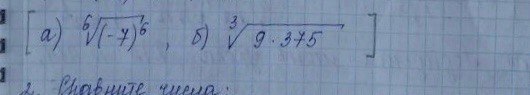 [ а) ⁶√(-7)⁶ , б) ³√9·375 ]
2. Сравните числа: